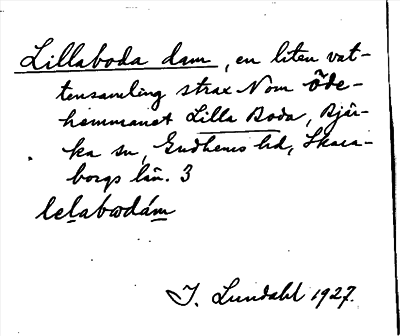 Lillaboda dam, en liten vat-
tensamling strax N om öde-
hemmanet Lilla Boda, Bjär-
ka sn, Gudhems hd, Skara-
borgs län. 3
lelabodám
I. Lundahl 1927.